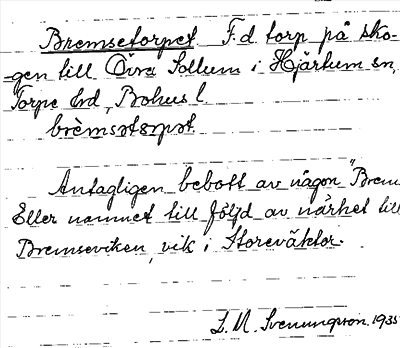 Bremsetorpet F.d torp på sko-
gen till Övra Sollum i Hjärtum sn,
Torpe hd, Bohus l
brèmsətårpət
Antagligen bebott av någon "Brem
Eller namnet till följd av närhet till
Bremseviken, vik i Storeväktor.
L. M. Svenungsson 1935